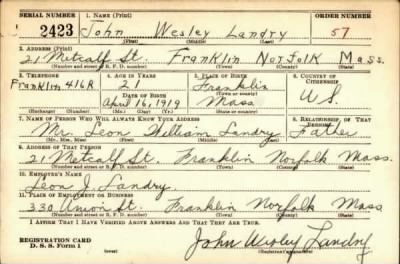 SERIAL NUMBER 1. NAME (Print) ORDER NUMBER
2423 John Wesley Landry 57
(First) (Middle) (Last)
2. ADDRESS (Print)
21 Metcalf St. Franklin Norfolk Mass.
(Number and street or R. F. D. number) (Town) (County) (State)
3. TELEPHONE 4. AGE IN YEARS 5. PLACE OF BIRTH 6. COUNTRY OF CITIZENSHIP
Franklin 416R 21 Franklin
DATE OF BIRTH (Town or county)
April 16, 1919 Mass U.S.
(Exchange) (Number) (Mo.) (Day) (Yr.) (State or country)
7. NAME OF PERSON WHO WILL ALWAYS KNOW YOUR ADDRESS 8. RELATIONSHIP OF THAT PERSON
Mr. Leon William Landry Father
(Mr., Mrs., Miss) (First) (Middle) (Last)
9. ADDRESS OF THAT PERSON
21 Metcalf St. Franklin Norfolk Mass.
(Number and street or R. F. D. number) (Town) (County) (State)
10. EMPLOYER'S NAME
Leon J. Landry.
11. PLACE OF EMPLOYMENT OR BUSINESS
330 Union St. Franklin Norfolk Mass
(Number and street or R. F. D. number) (Town) (County) (State)
I AFFIRM THAT I HAVE VERIFIED ABOVE ANSWERS AND THAT THEY ARE TRUE.
REGISTRATION CARD
D. S. S. Form 1 John Wesley Landry
(Registrant's signature)